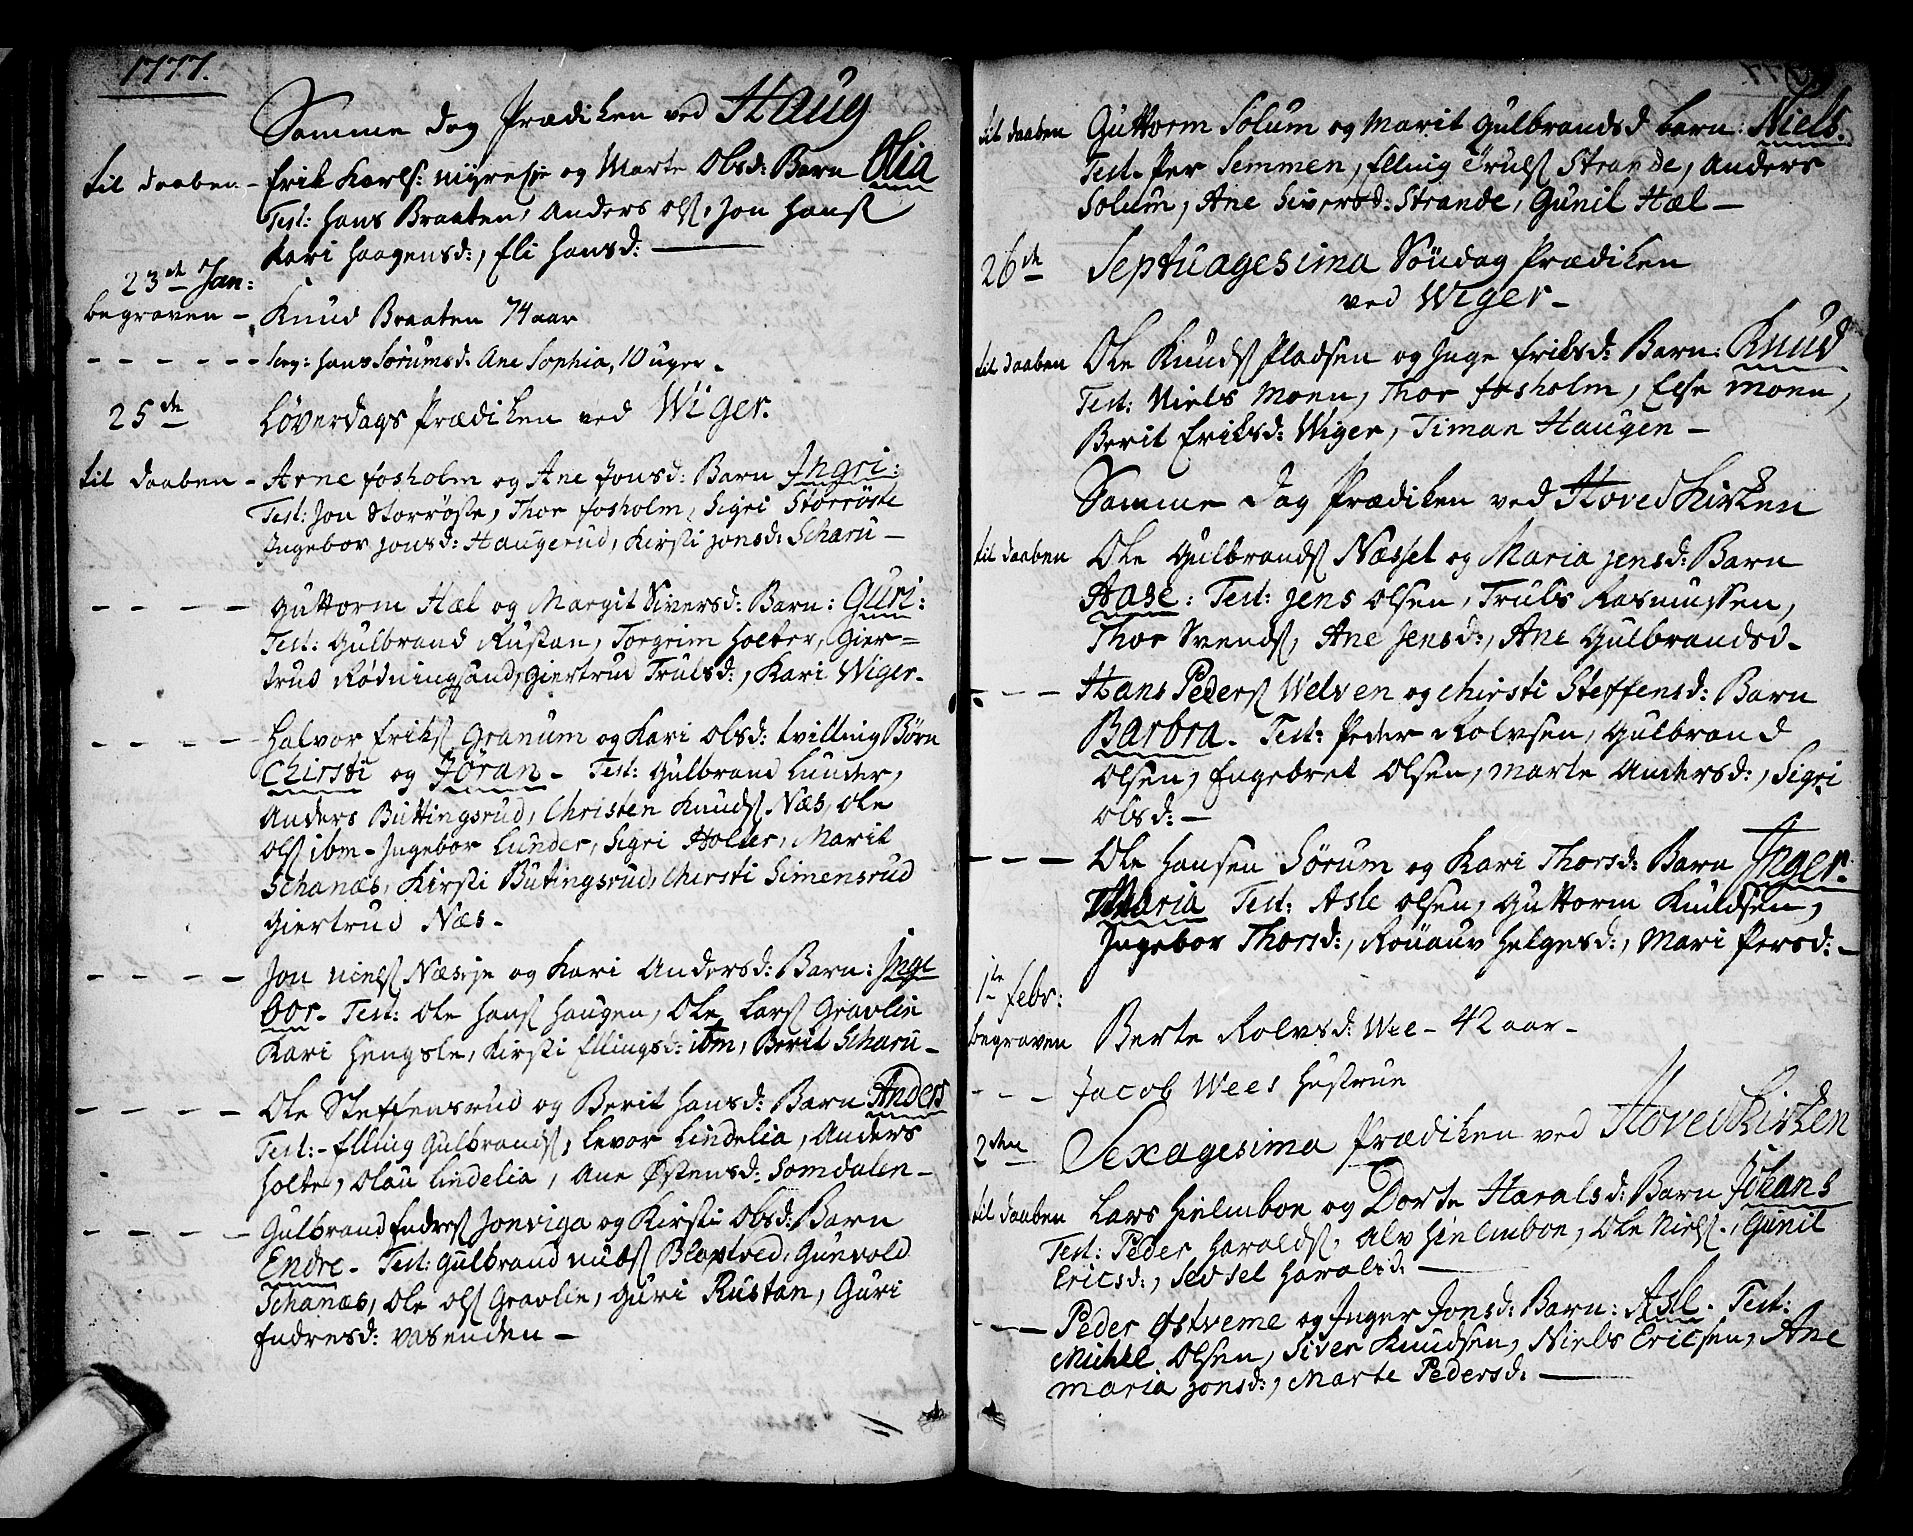 1777.
Samme dag Prædiken ved Haug
til daaben - Erik Karls: myresie og Marte Olsd: Barn Olia
Test: Hans Braaten, Anders Ols, Jon Hans
Kari Haagensd:, Eli Hansd:
23de Jan:
begraven - Knud Braaten 74 aar
- - - - - - Hans Sørumsd: Ane Sophia, 10 uger.
25de Løverdags Prædiken ved Wiger.
til daaben - Arne fosholm og Ane Jonsd: Barn Ingri:
Test: Jon Storröste, Thor fosholm, Sigri Störröste
Ingebor Jonsd: Haugerud, Kirsti Jonsd: Scharu -
- - - - Guttorm Hæl og Margit Siversd: Barn: Guri:
Test: Gulbrand Rustan, Torgrim Holter, Gier=
trud Rødningsand, Giertrud Trulsd:, Kari Wiger-
- - - - Halvor Eriks Granum og Kari Olsd: tvilling Børn
Chirsti og Jöran - Test: Gulbrand Lunder,
Anders Buttingsrud, Christen Knuds Næs, Ole
Ols ibm - Ingebor Lunder, Sigri Holter, Marit
Schanæs, Kirsti Butingsrud, Chirsti Simensrud
Giertrud Næs -
- - - - Jon Niels Næseje og Kari Andersd: Barn: Inge
bor - Test: Ole Hans Haugen, Ole Lars Gravlin
Kari Hengsle, Kirsti Ellingsd: ibm, Berit Scharu -
- - - - Ole Steffensrud og Berit Hansd: Barn Anders
Test: - Elling Gulbrands, Levor Lindelia, Anders
Holte, Olau Lindelia, Ane Østensd: Somdalen -
- - - - Gulbrand Endres Jonviga og Kirsti Olsd: Barn
Endre - Test: Gulbrand Nubs Blaxtved, Gunvold
Schanæs, Ole Ols Gravlie, Guri Rustan, Guri
Endresd: Vasenden -
til daaben Guttorm Solum og Marit Gulbrandsd Barn: Niels.
Test. Per Semmen, Elling Truls Strande, Anders
Solum, Ane Siversd: Strande, Gunil Hæl -
26de Septuagesima Söndag Prædiken
ved Wiger -
til daaben Ole Knuds Pladsen og Inge Eriksd: Barn: Knud
Test: Niels Moen, Thor fosholm, Else Moen,
Berit Eriksd: Wiger, Timan Haugen -
Samme Dag Prædiken ved HovedKirken
til daaben Ole Gulbrands Næsset og Maria Jensd: Barn
Aase: Test: Jens Olsen, Truls Rasmussen,
Thor Svends, Ane Jensd:, Ane Gulbrandsd -
- - - Hans Peders Welven og Chirsti Steffensd: Barn
Barbra. Test: Peder Rolvsen, Gulbrand
Olsen, Engebret Olsen, Marte Andersd:, Sigri
Olsd: -
- - - Ole Hansen Sørum og Kari Thorsd: Barn Inger.
Maria Test: Asle Olsen, Guttorm Knudsen,
Ingebor Thorsd:, Rönauv Helgesd:, Mari Persd: -
1te febr:
begraven Berte Rolvsd: Wee - 42 aar -
- - - Jacob Wees Hustrue
2den Sexagesima Prædiken ved HovedKirken
til daaben Lars Hielmboe og Dorte Haralsd: Barn Johans
Test: Peder Haralds, Alv Hielmboe, Ole Niels, Gunil
Ericsd:, Sedsel Haralsd: -
- - - Peder Østveme og Inger Jonsd: Barn: Asle. Test:
Mickel Olsen, Siver Knudsen, Niels Ericsen, Ane
Maria Jonsd:, Marte Pedersd: -